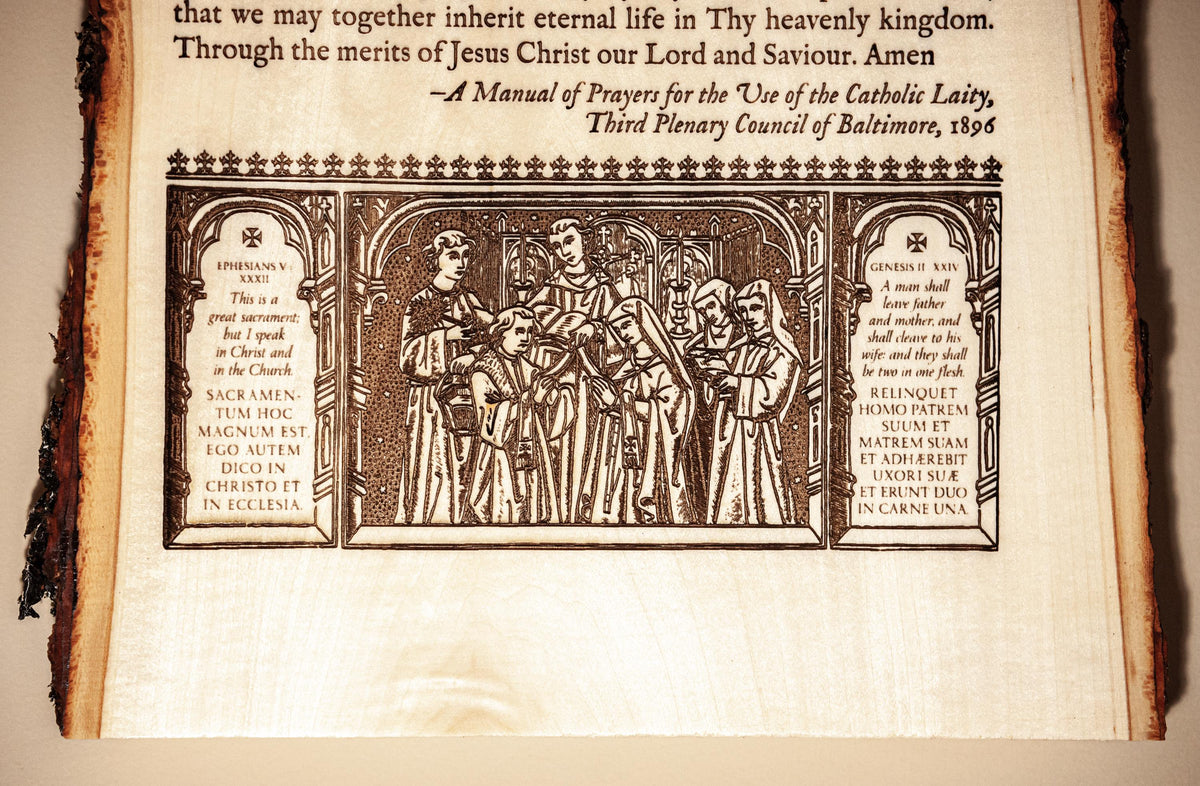 that we may together inherit eternal life in Thy heavenly kingdom.
Through the merits of Jesus Christ our Lord and Saviour. Amen
–A Manual of Prayers for the Use of the Catholic Laity,
Third Plenary Council of Baltimore, 1896
EPHESIANS V:
XXXII
This is a
great sacrament;
but I speak
in Christ and
in the Church.
SACRAMEN-
TUM HOC
MAGNUM EST,
EGO AUTEM
DICO IN
CHRISTO ET
IN ECCLESIA.
GENESIS II XXIV
A man shall
leave father
and mother, and
shall cleave to his
wife: and they shall
be two in one flesh.
RELINQUET
HOMO PATREM
SUUM ET
MATREM SUAM
ET ADHÆREBIT
UXORI SUÆ
ET ERUNT DUO
IN CARNE UNA.